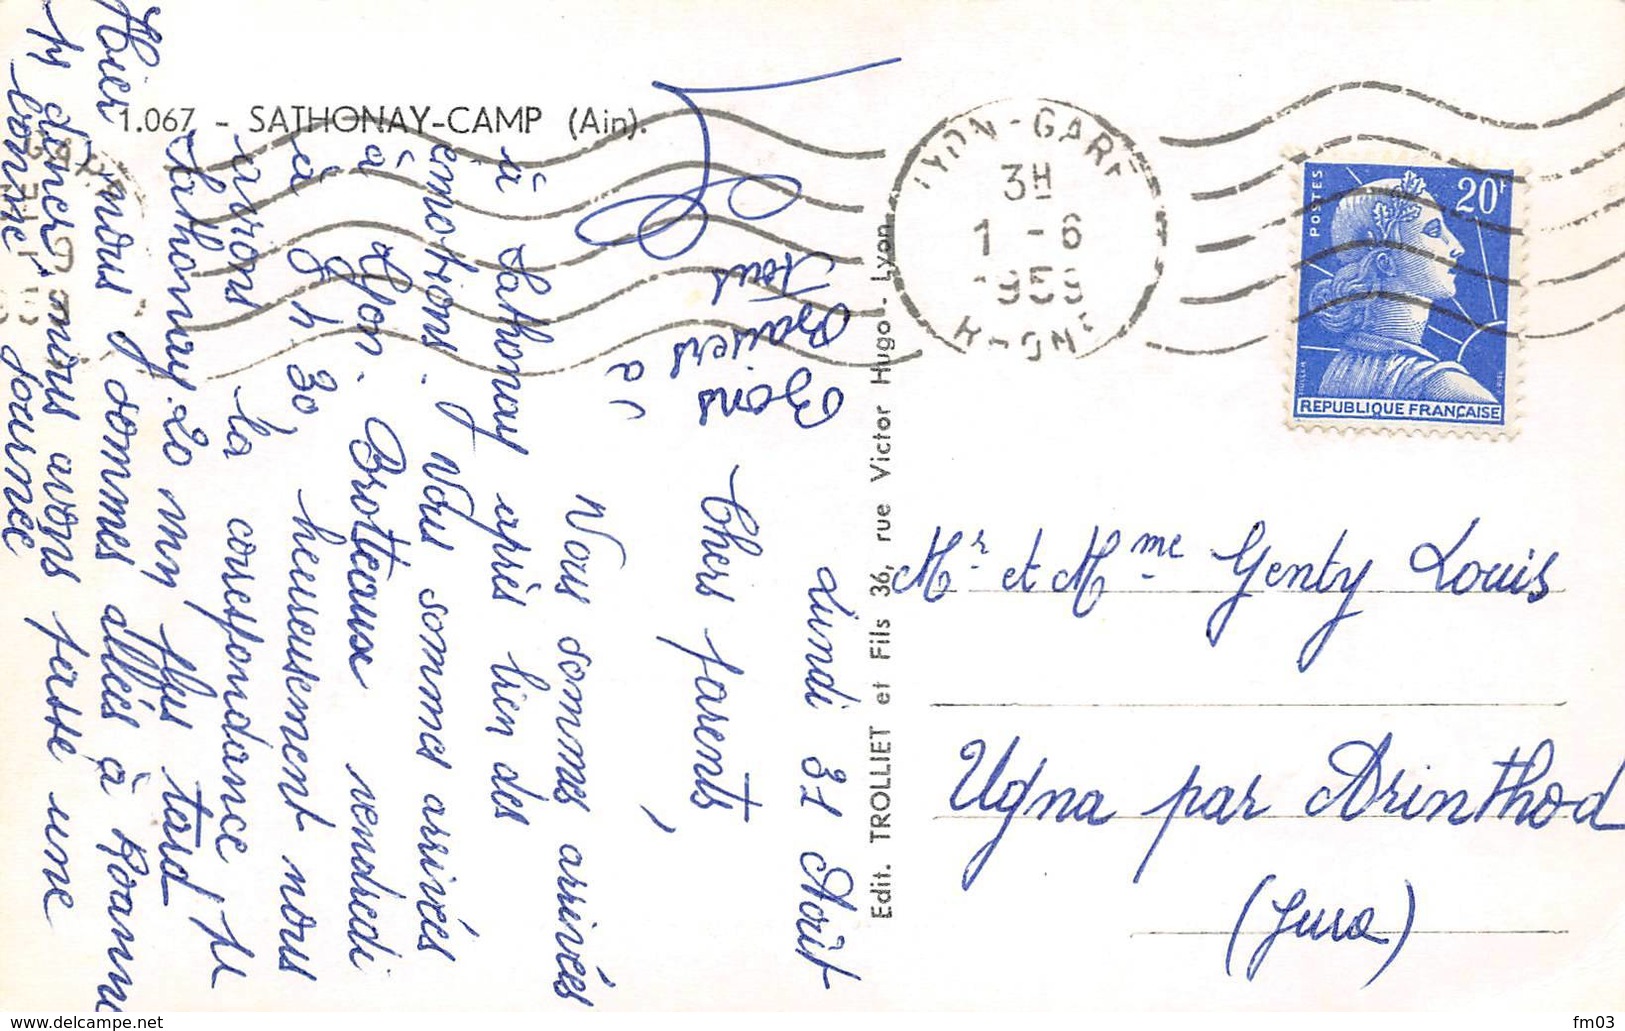 1.067 - SATHONAY-CAMP (Ain).
Lundi 31 Août
Chers parents,
Nous sommes arrivés
à Sathonay après bien des
émotions. Nous sommes arrivés
à Lyon. Brotteaux vendredi
à 9 h 30, heureusement nous
avions la correspondance pr
Sathonay 20 mn plus tard
Hier nous sommes allés à Roanne
pr dîner nous avons passé une
bonne journée
Bons
Baisers à
Tous
Edit. TROLLIET et Fils 36, rue Victor Hugo - Lyon
LYON-GARE
3H
1 -6
1959
RHONE
POSTES
20F
REPUBLIQUE FRANÇAISE
Mr et Mme Genty Louis
Ugna par Arinthod
(Jura)
fm03
www.delcampe.net